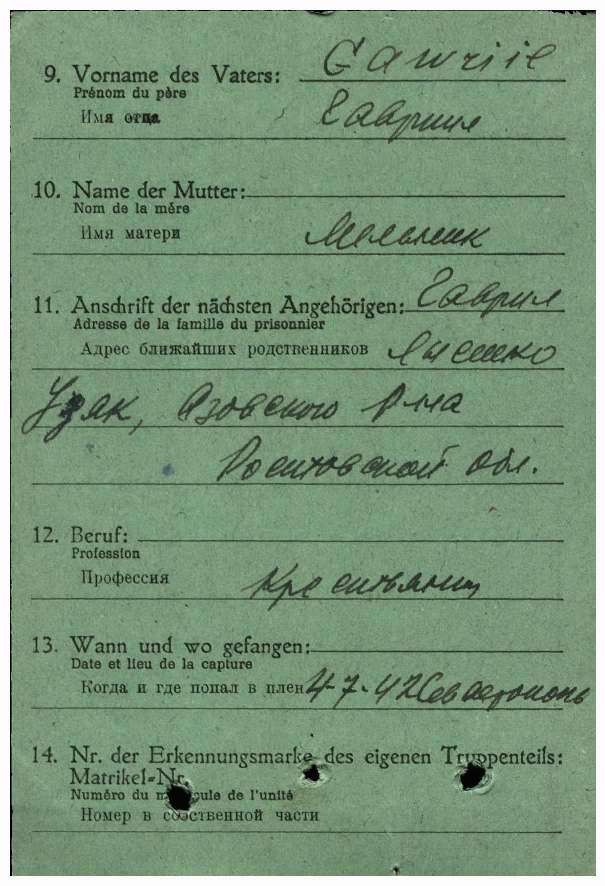 9. Vorname des Vaters: Gawriil
Prénom du père
Имя отца Гавриил
10. Name der Mutter:
Nom de la mére
Имя матери Мельник
11. Anschrift der nächsten Angehörigen: Гаврил
Adresse de la famille du prisonnier
Адрес ближайших родственников Лысенко
Узяк, Азовского Р-на
Ростовской обл.
12. Beruf:
Profession
Профессия Крестьянин
13. Wann und wo gefangen:
Date et lieu de la capture
Когда и где попал в плен 4-7-42 Севастополь
14. Nr. der Erkennungsmarke des eigenen Truppenteils:
Matrikel-Nr.
Numéro du matricule de l'unité
Номер в собственной части